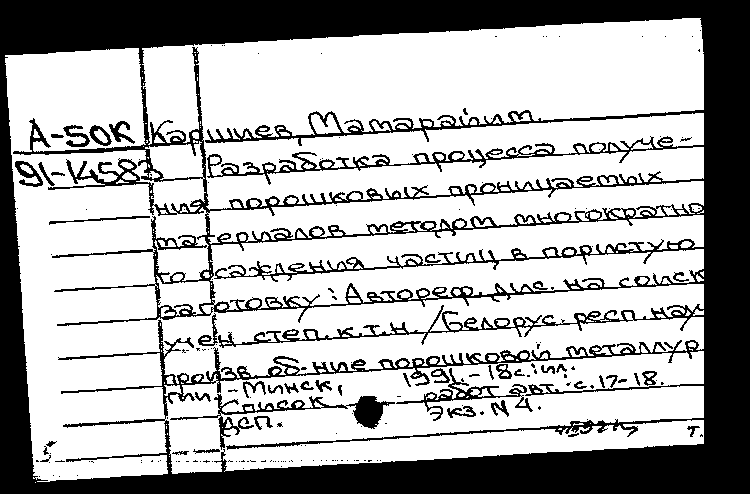 А-50К Каршиев, Матарайим.
91-14583 Разработка процесса получе-
ния порошковых проницаемых
материалов методом многократно
го осаждения частиц в пористую
заготовку: Автореф. дис. на соиск
учен. степ. к.т.н. / Белорус. респ. науч
произв. об-ние порошковой металлур
гии. - Минск, 1991. - 18с.: ил.
Список работ авт.: с. 17-18.
ДСП. Экз. N 4.
5 т.